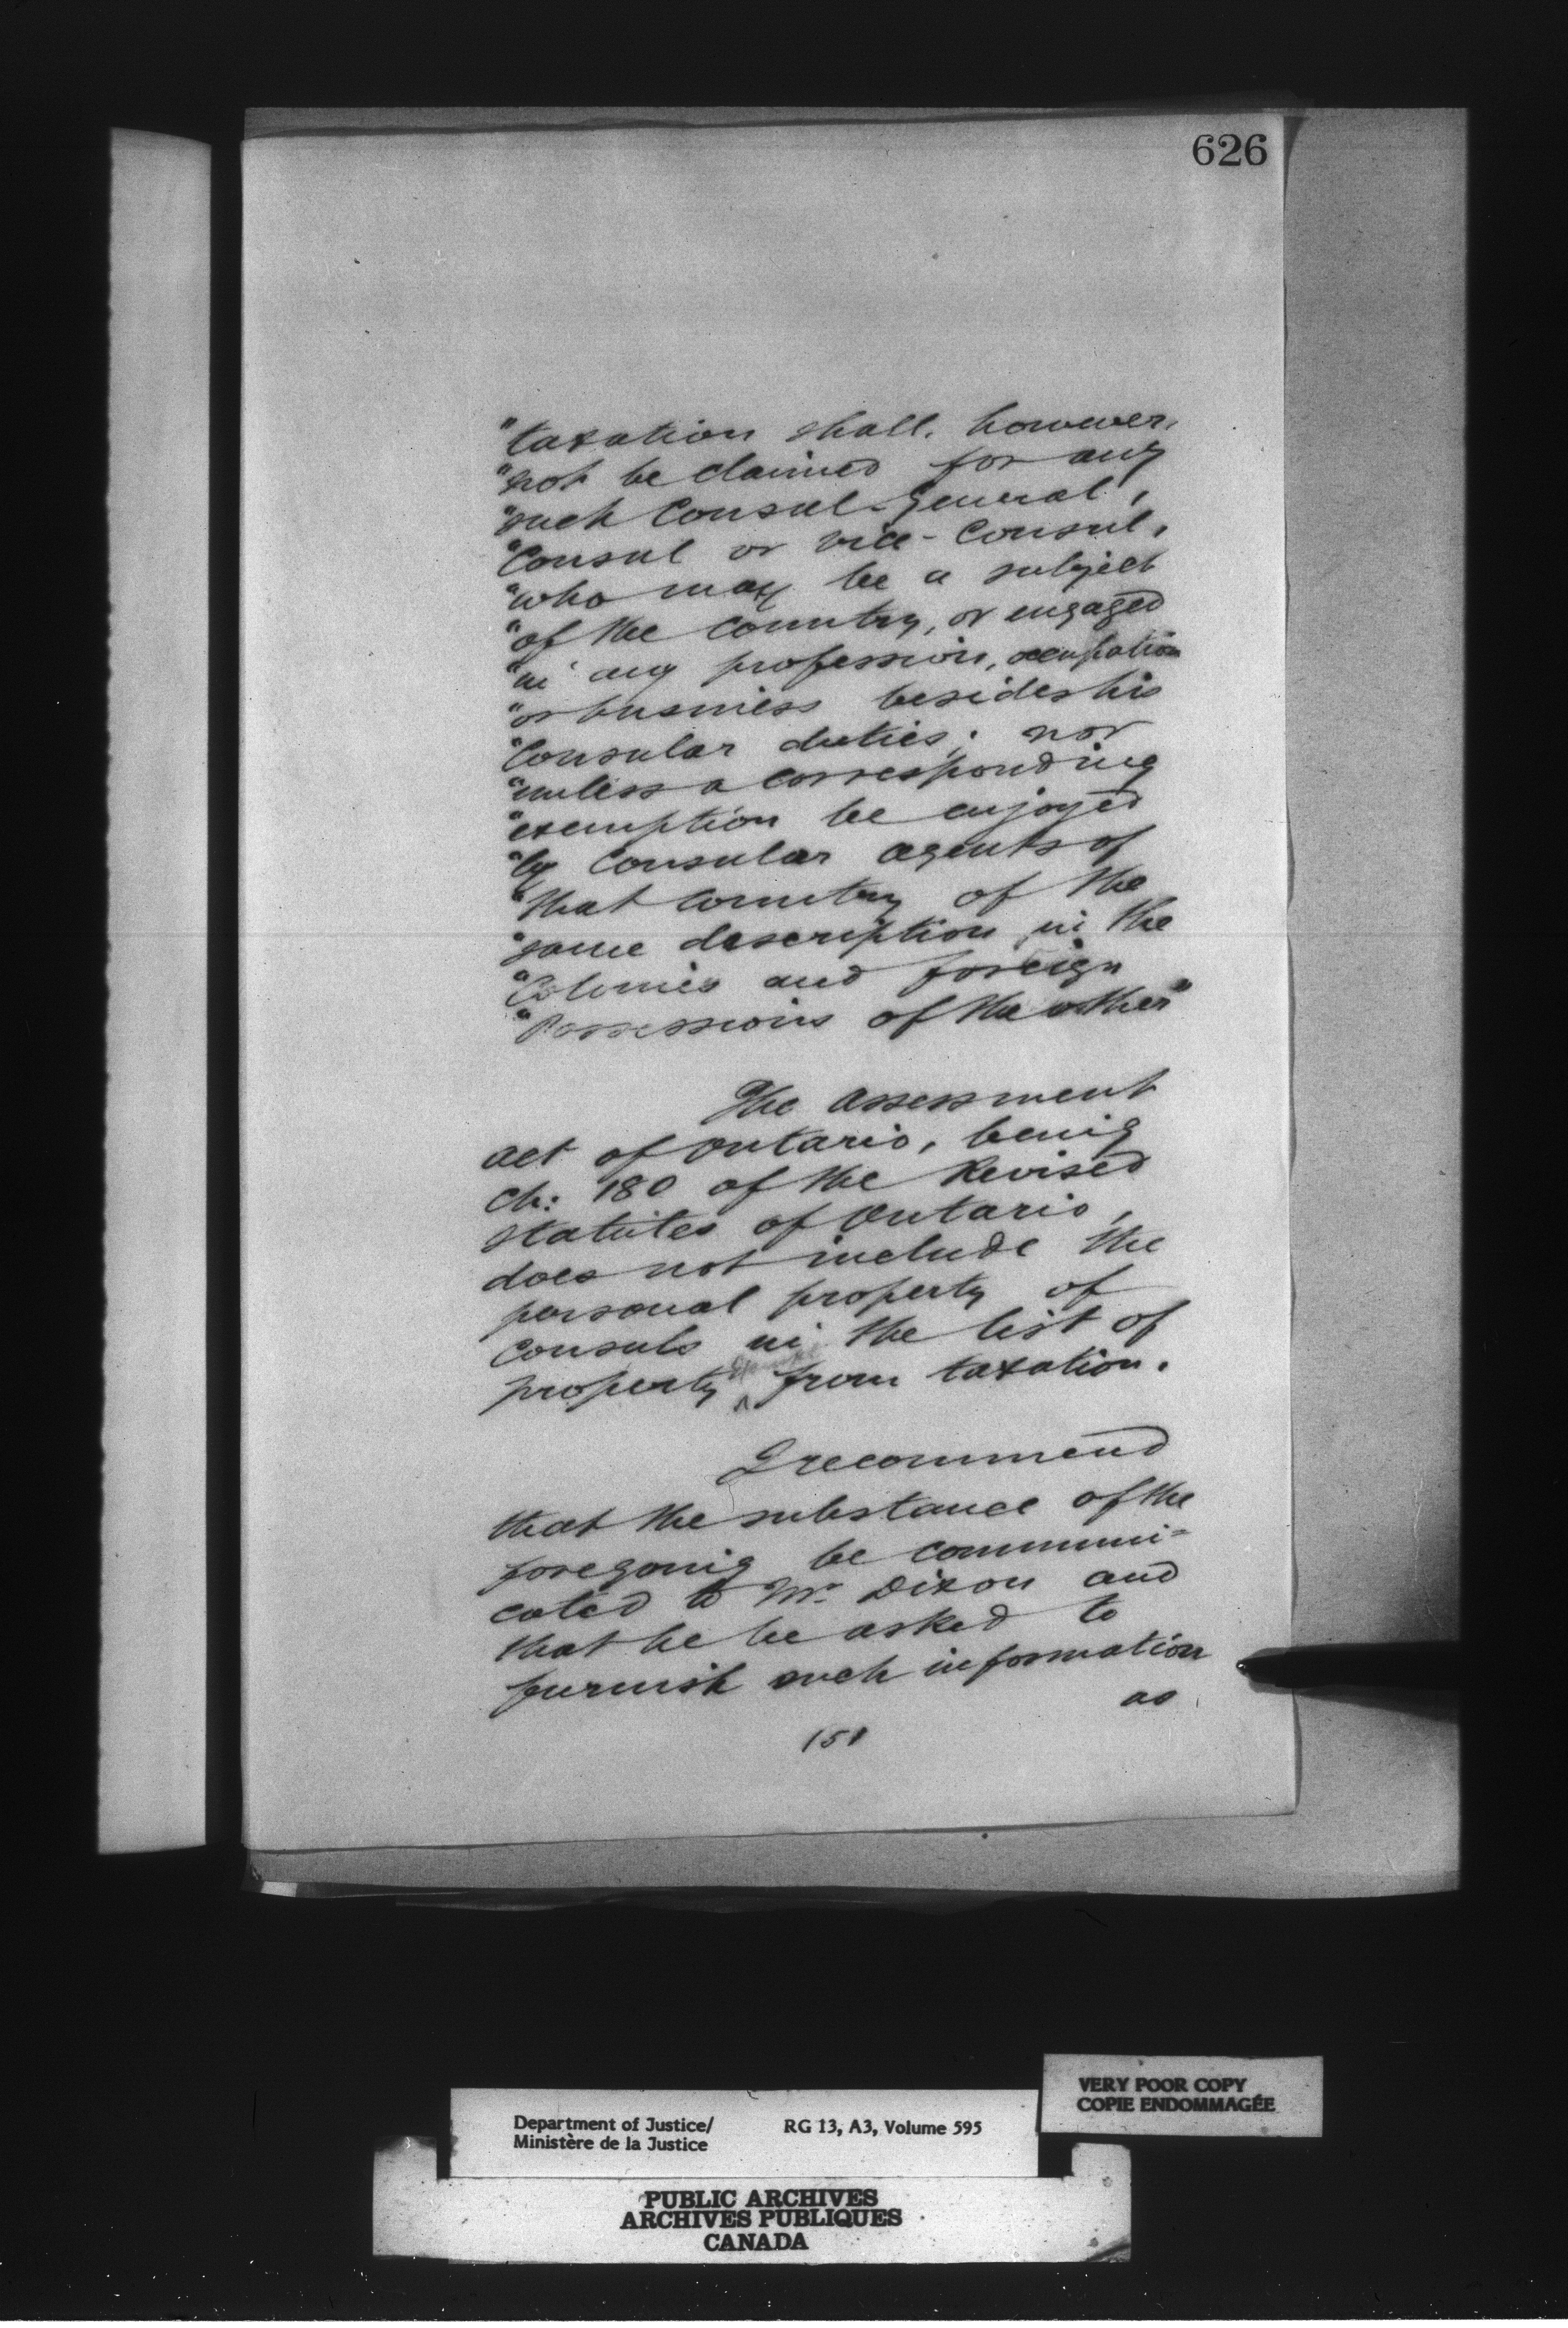 626
"taxation shall, however,
"not be claimed for any
"such Consul-General,
"Consul or Vice-Consul,
"who may be a subject
"of the Country, or engaged
"in any profession, occupation
"or business besides his
"Consular duties; nor
"unless a corresponding
"exemption be enjoyed
"by Consular agents of
"that Country of the
"same description in the
"Colonies and foreign
"Possessions of the other"
The Assessment
Act of Ontario, being
Ch: 180 of the Revised
Statutes of Ontario,
does not include the
personal property of
Consuls in the list of
property exempt from taxation.
I recommend
that the substance of the
foregoing be communi=
cated to Mr. Dixon and
that he be asked to
furnish such information
as
151
VERY POOR COPY
COPIE ENDOMMAGÉE
Department of Justice/ RG 13, A3, Volume 595
Ministère de la Justice
PUBLIC ARCHIVES
ARCHIVES PUBLIQUES
CANADA